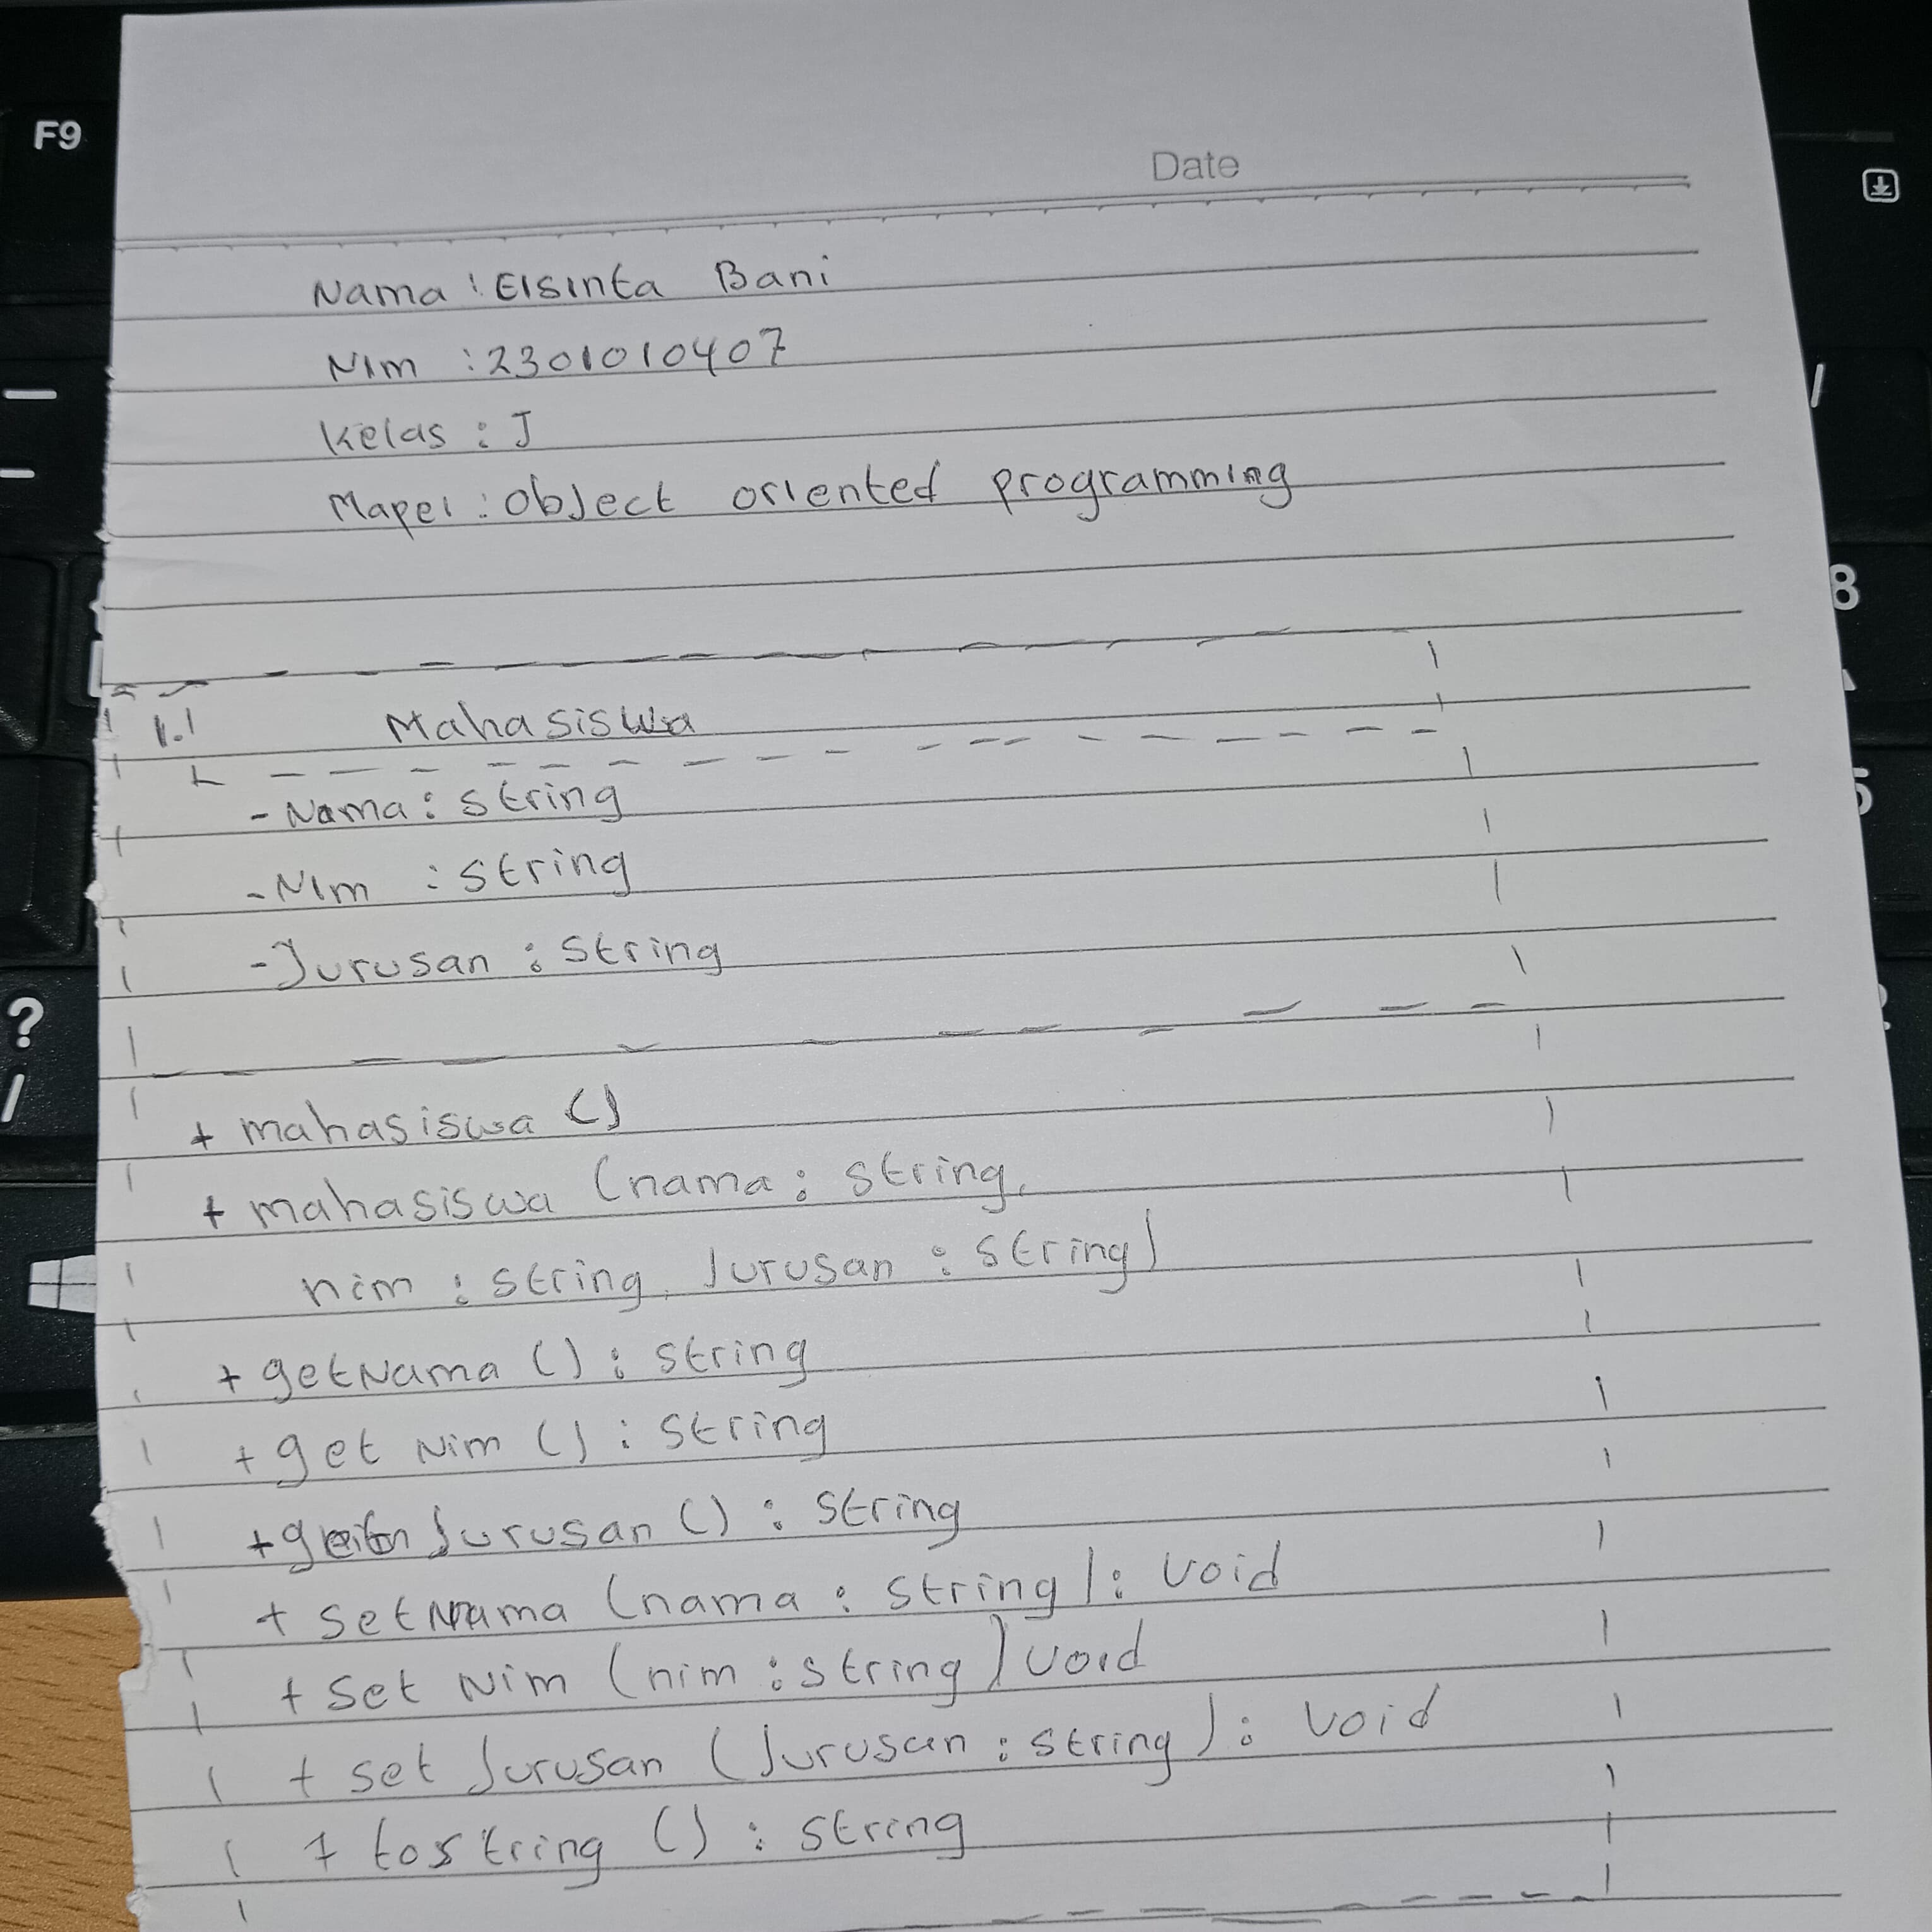 F9
Date
Nama : Elsinta Bani
Nim : 2301010407
Kelas : J
Mapel : Object oriented programming
8
1.1 Mahasiswa
- Nama : string
5
- Nim : string
- Jurusan : string
?
/
+ mahasiswa ()
+ mahasiswa (nama : string,
nim : string, Jurusan : string)
+ getNama () : string
+ get Nim () : string
Jurusan () : string
+ setNama (nama : string) : void
+ set Nim (nim : string) void
+ set Jurusan (Jurusan : string) : void
+ tostring () : string